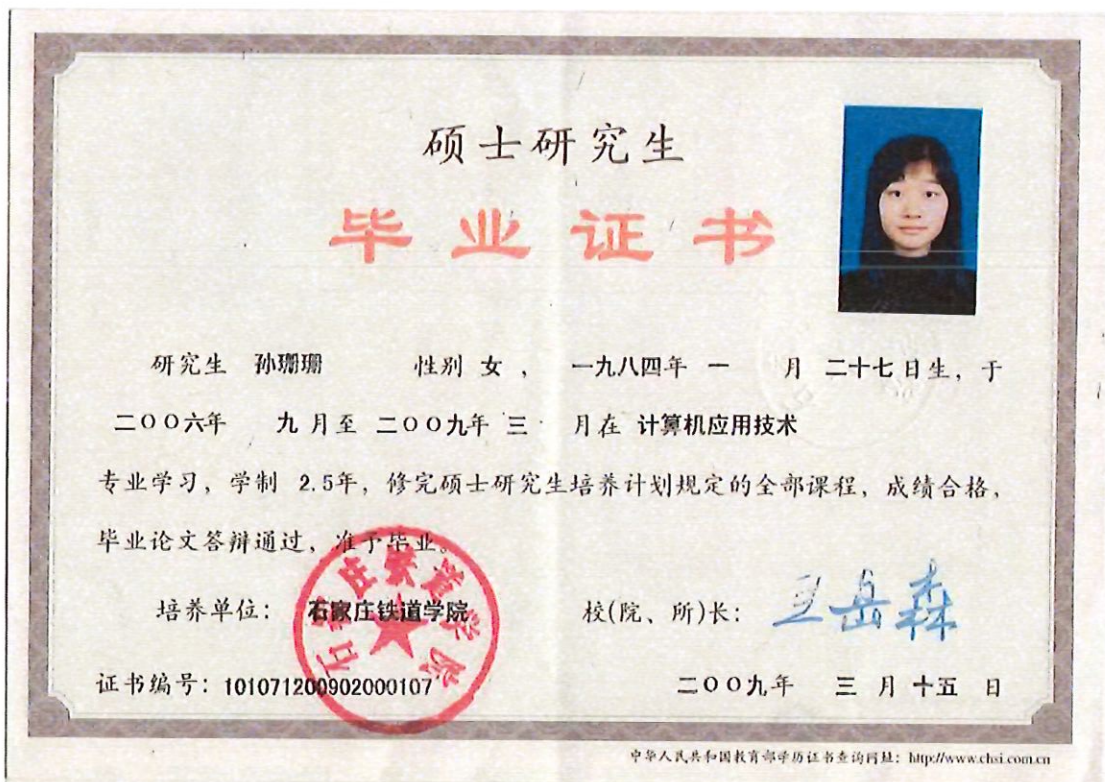 硕士研究生
毕业证书
研究生 孙珊珊 性别 女 ， 一九八四年 一 月 二十七 日生，于
二〇〇六年 九 月至 二〇〇九年 三 月在 计算机应用技术
专业学习，学制 2.5年，修完硕士研究生培养计划规定的全部课程，成绩合格，
毕业论文答辩通过，准予毕业。
培养单位： 石家庄铁道学院 校(院、所)长： 王岳森
石家庄铁道学院
证书编号：101071200902000107 二〇〇九年 三 月 十五 日
中华人民共和国教育部学历证书查询网址：http://www.chsi.com.cn